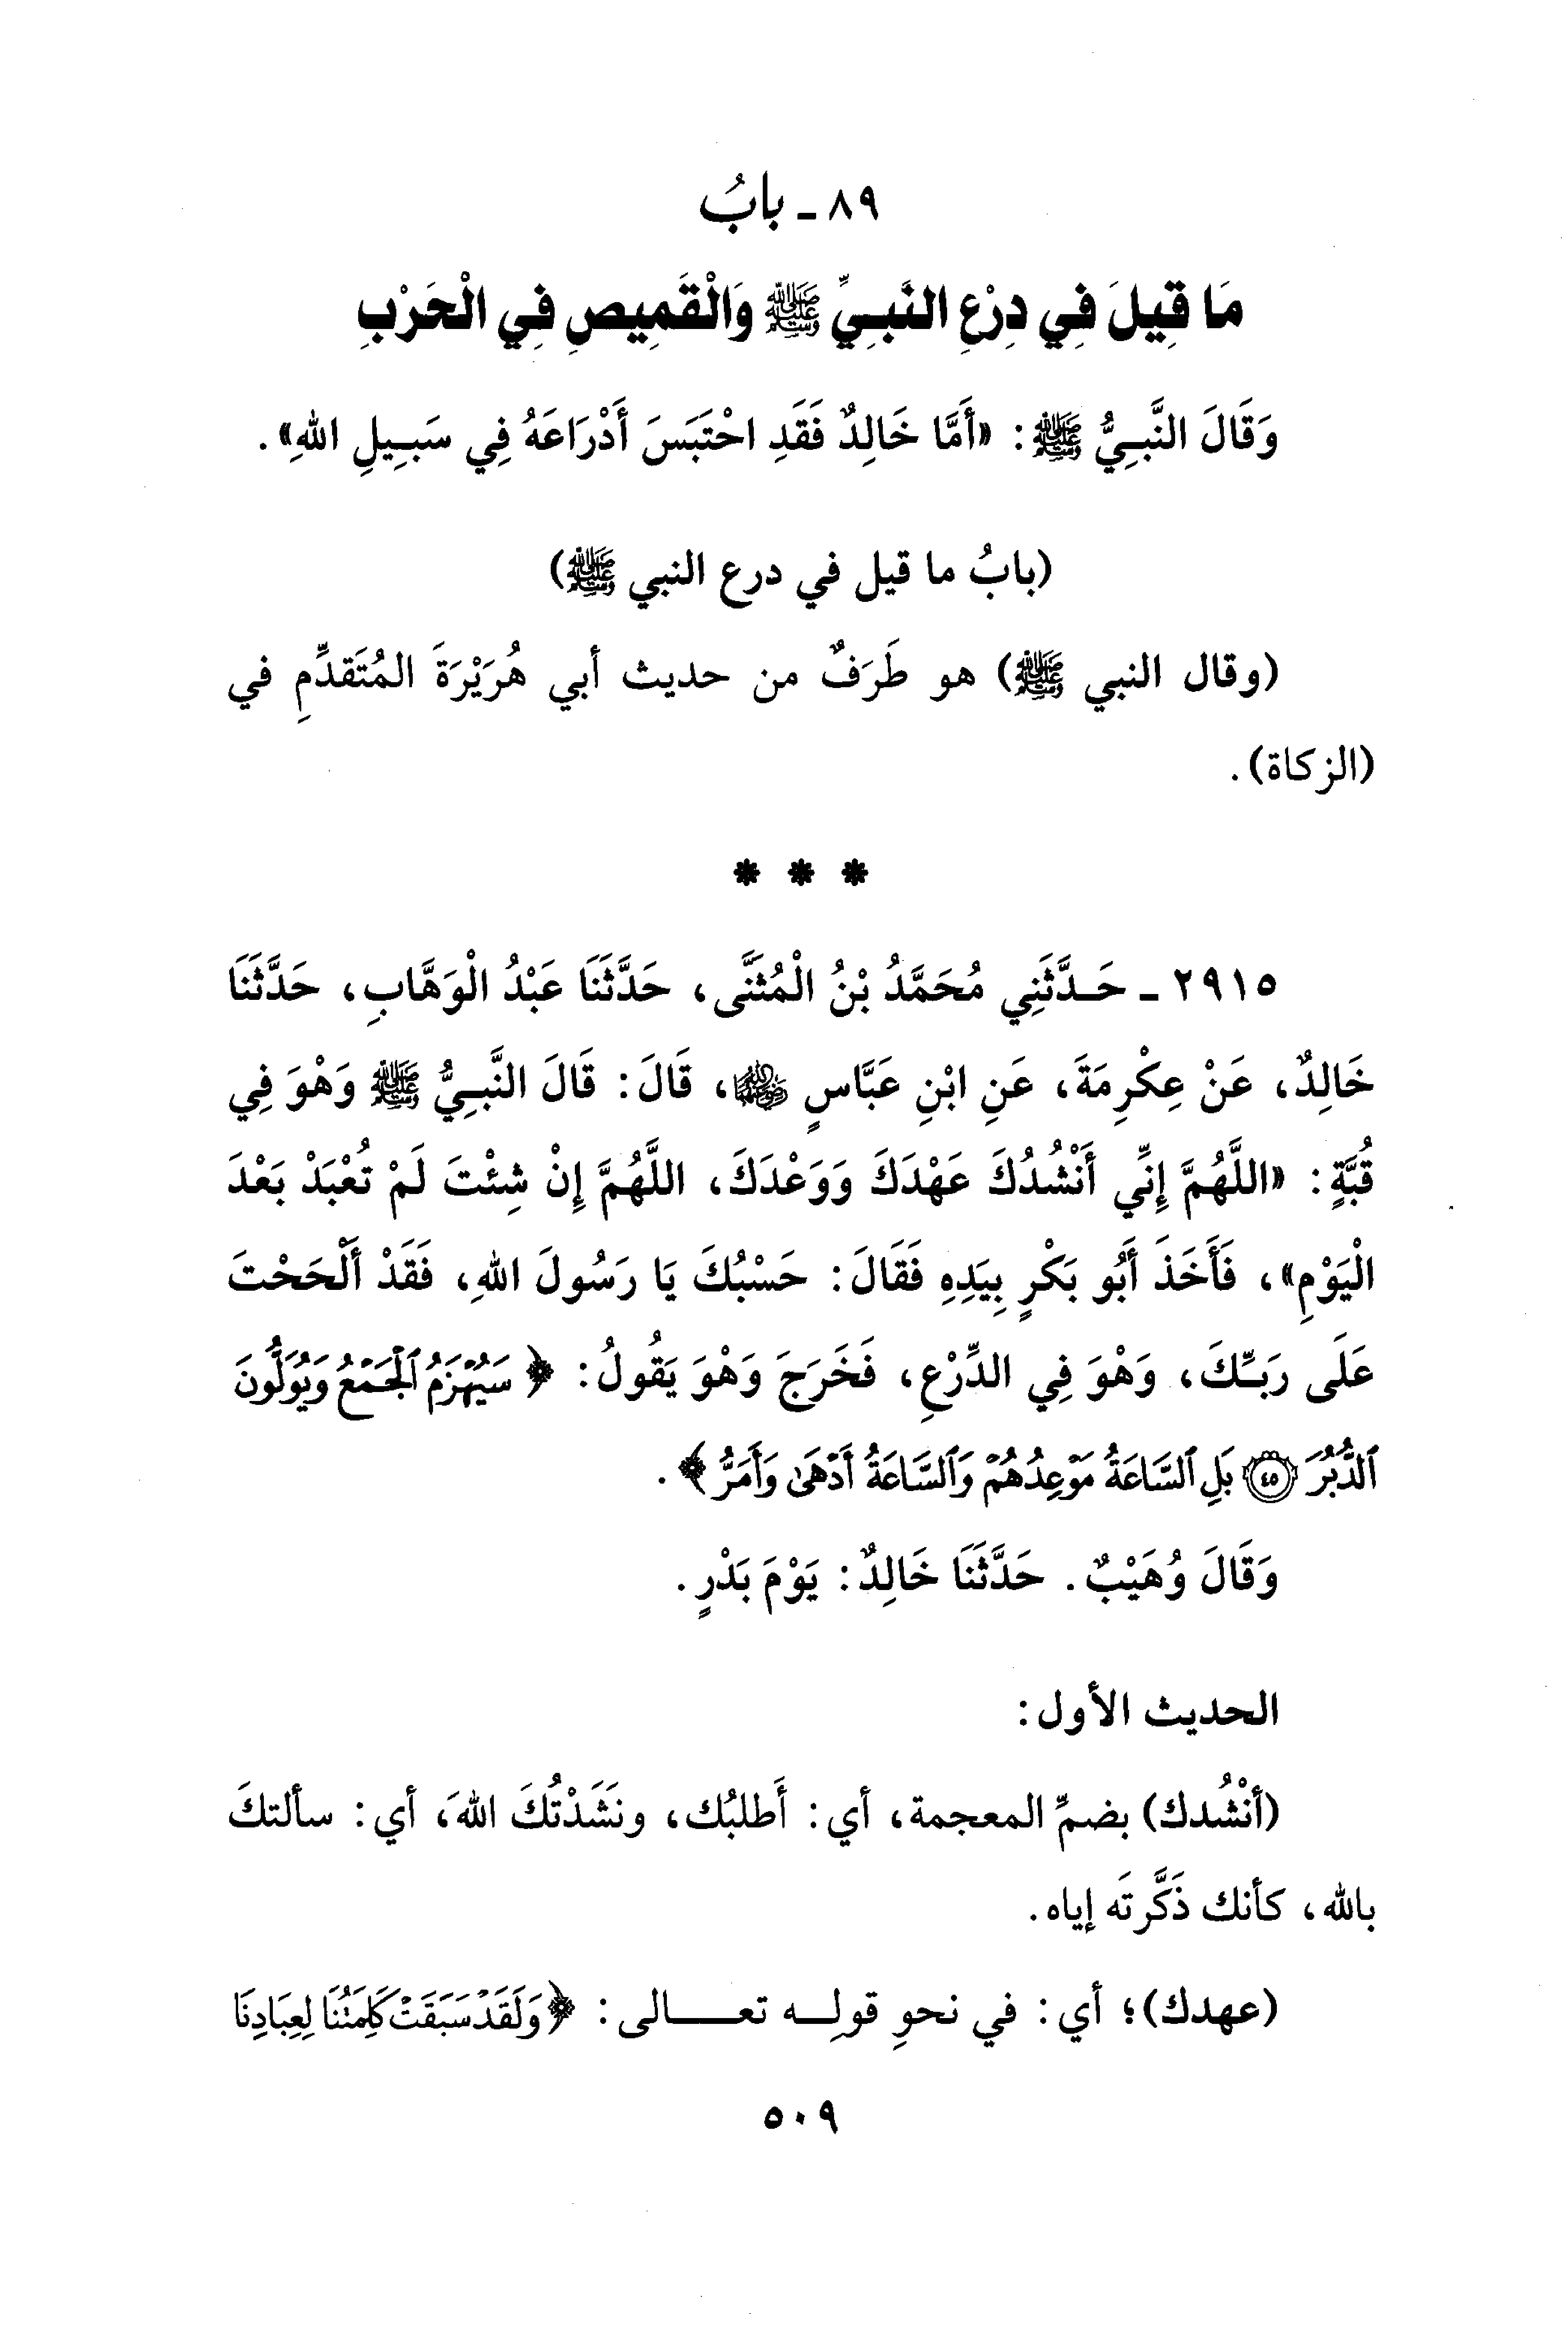 ٨٩ - بابُ
مَا قِيلَ فِي دِرْعِ النَّبِيِّ ﷺ وَالْقَمِيصِ فِي الْحَرْبِ
وَقَالَ النَّبِيُّ ﷺ: «أَمَّا خَالِدٌ فَقَدِ احْتَبَسَ أَدْرَاعَهُ فِي سَبِيلِ اللهِ».
(بابُ ما قيل في درع النبي ﷺ)
(وقال النبي ﷺ) هو طَرَفٌ من حديث أبي هُرَيْرَةَ المُتَقدِّمِ في
(الزكاة).
* * *
٢٩١٥ - حَدَّثَنِي مُحَمَّدُ بْنُ الْمُثَنَّى، حَدَّثَنَا عَبْدُ الْوَهَّابِ، حَدَّثَنَا
خَالِدٌ، عَنْ عِكْرِمَةَ، عَنِ ابْنِ عَبَّاسٍ رضي الله عنهما، قَالَ: قَالَ النَّبِيُّ ﷺ وَهْوَ فِي
قُبَّةٍ: «اللَّهُمَّ إِنِّي أَنْشُدُكَ عَهْدَكَ وَوَعْدَكَ، اللَّهُمَّ إِنْ شِئْتَ لَمْ تُعْبَدْ بَعْدَ
الْيَوْمِ»، فَأَخَذَ أَبُو بَكْرٍ بِيَدِهِ فَقَالَ: حَسْبُكَ يَا رَسُولَ اللهِ، فَقَدْ أَلْحَحْتَ
عَلَى رَبِّكَ، وَهْوَ فِي الدِّرْعِ، فَخَرَجَ وَهْوَ يَقُولُ: ﴿سَيُهْزَمُ ٱلْجَمْعُ وَيُوَلُّونَ
ٱلدُّبُرَ ۝٤٥ بَلِ ٱلسَّاعَةُ مَوْعِدُهُمْ وَٱلسَّاعَةُ أَدْهَىٰ وَأَمَرُّ﴾.
وَقَالَ وُهَيْبٌ. حَدَّثَنَا خَالِدٌ: يَوْمَ بَدْرٍ.
الحديث الأول:
(أنْشُدك) بضمِّ المعجمة، أي: أَطلبُك، ونَشَدْتُكَ اللهَ، أي: سألتكَ
بالله، كأنك ذَكَّرتَه إياه.
(عهدك)؛ أي: في نحوِ قولِه تعالى: ﴿وَلَقَدْ سَبَقَتْ كَلِمَتُنَا لِعِبَادِنَا
٥٠٩